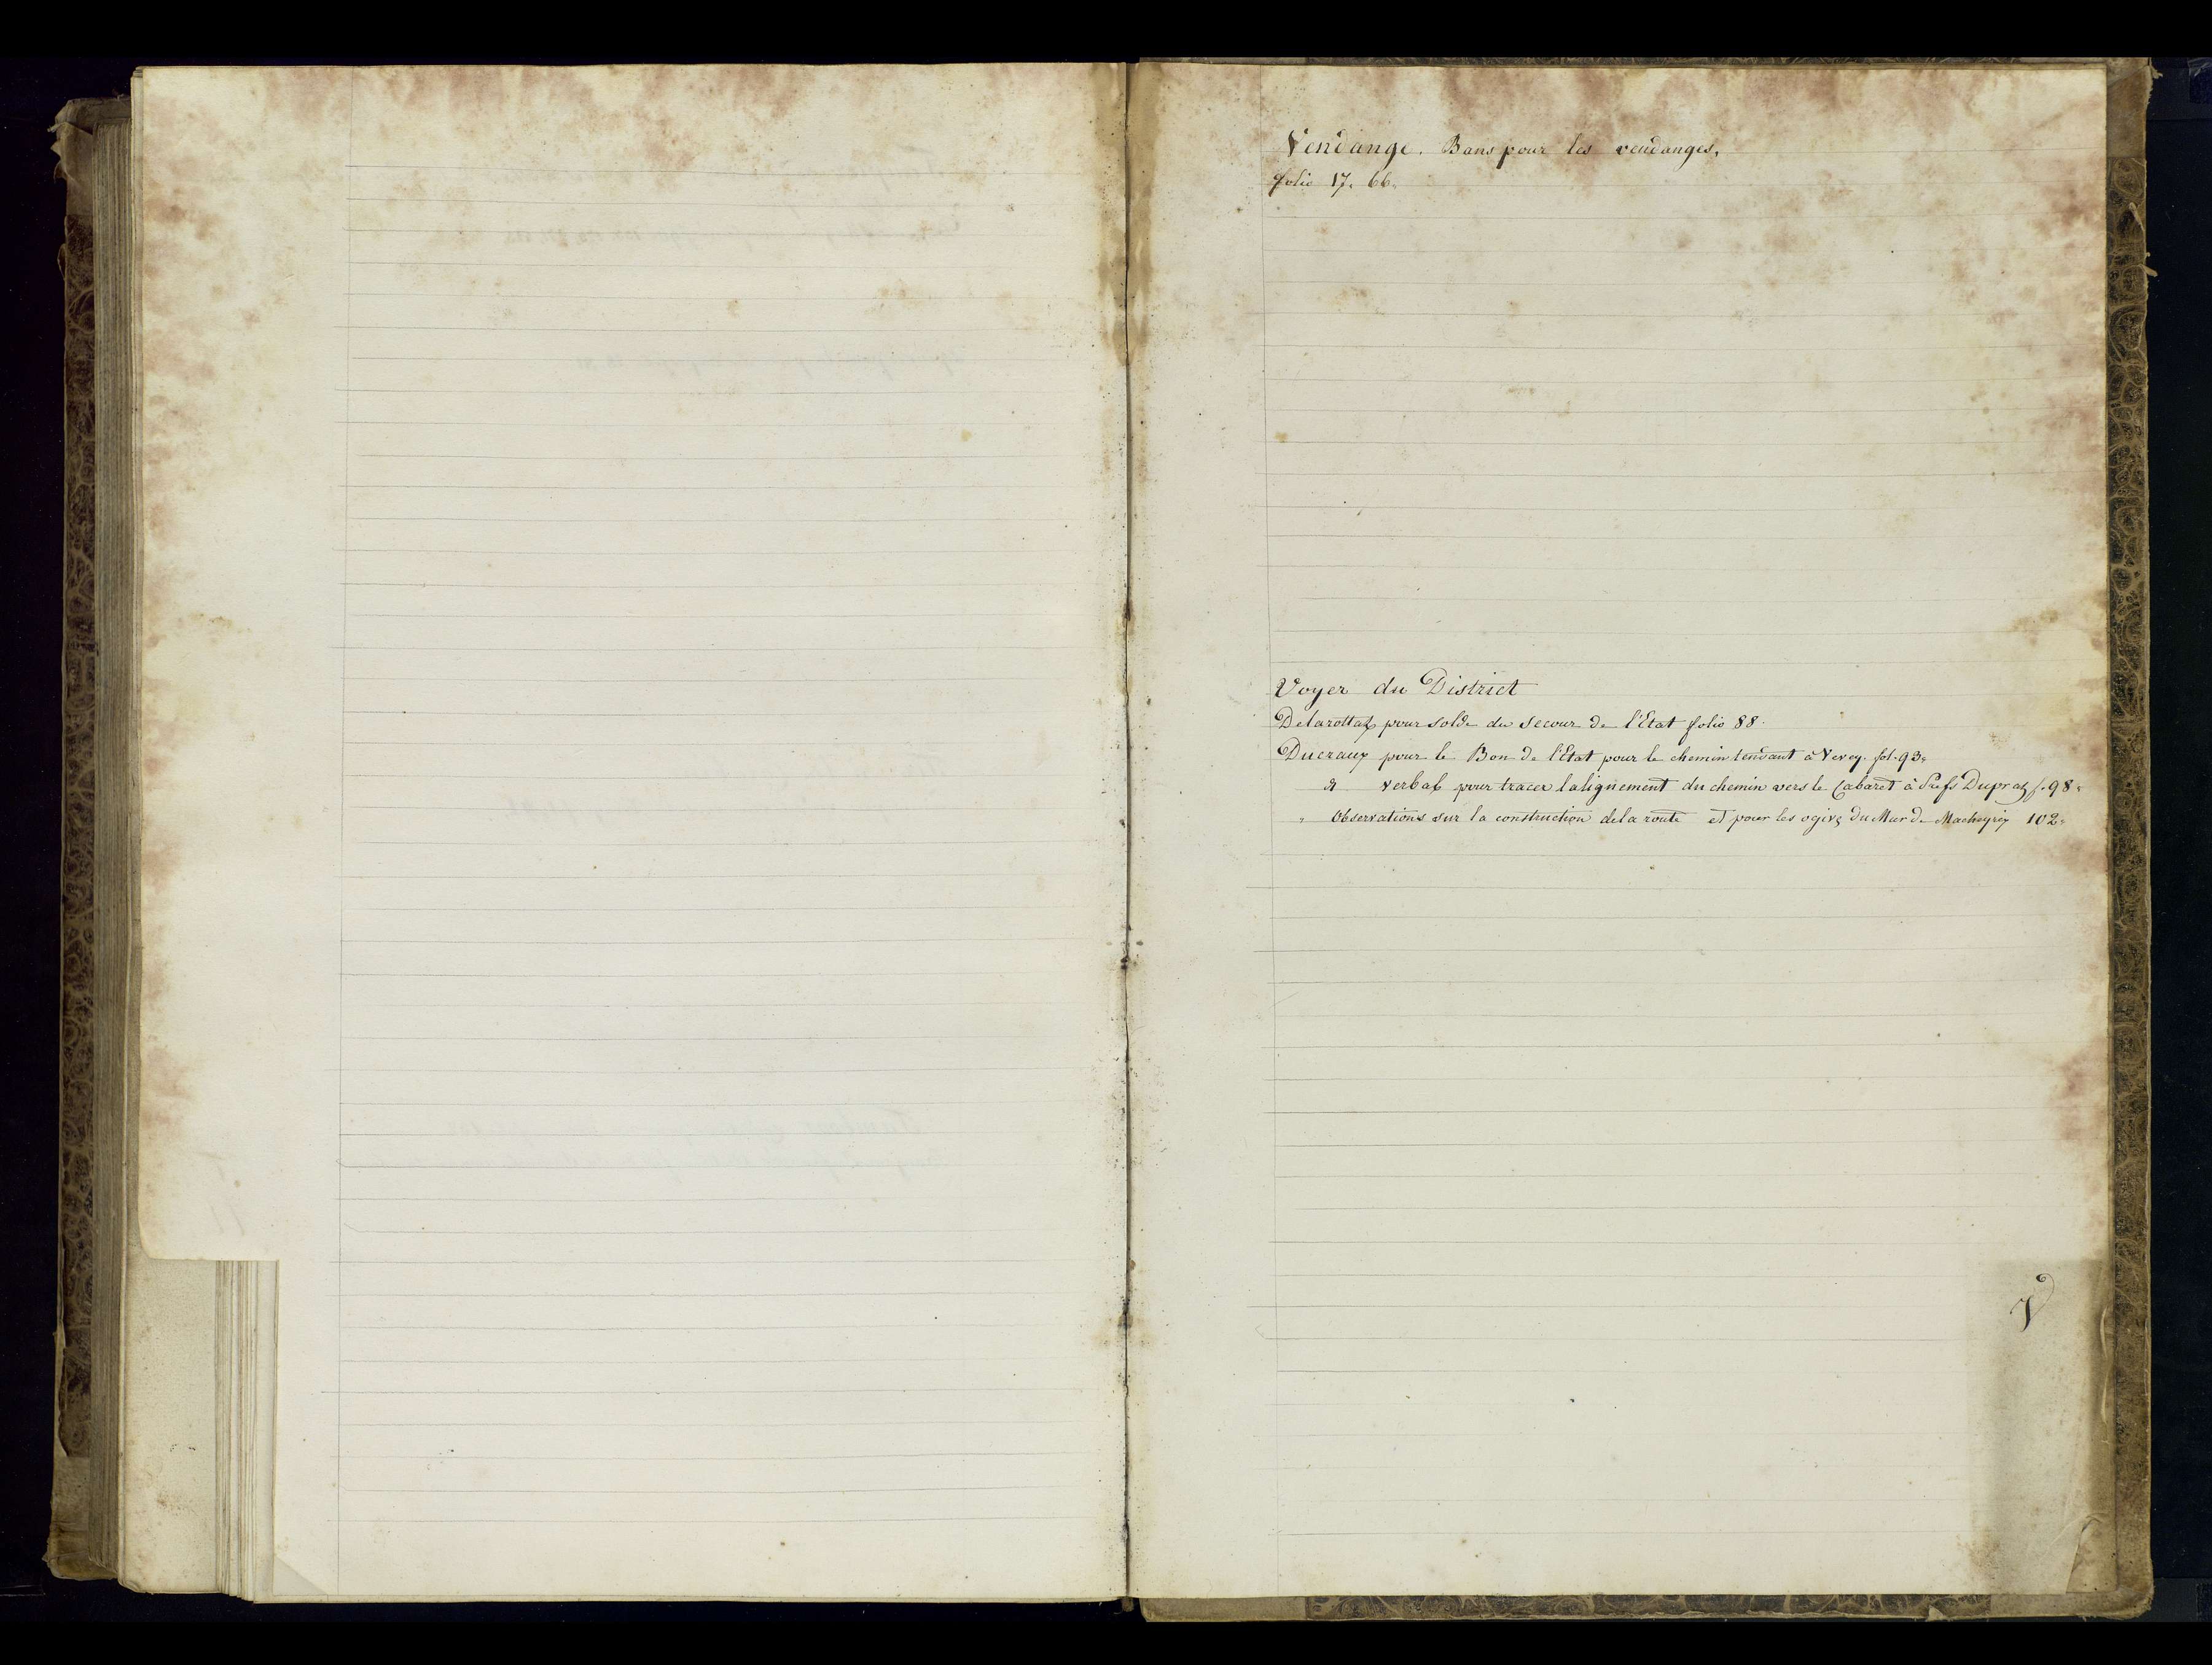 Vendange. Bans pour les vendanges,
folio 17. 66.
Voyer du District
Delarottaz pour solde du secour de l'Etat folio 88.
Ducraux pour le Bon de l'Etat pour le chemin tendant à Vevey. fol. 93.
verbal pour tracer lalignement du chemin vers le Cabaret à Dupraz f. 98.
" Observations sur la construction de la route et pour les ogives du Mur de 102.
V